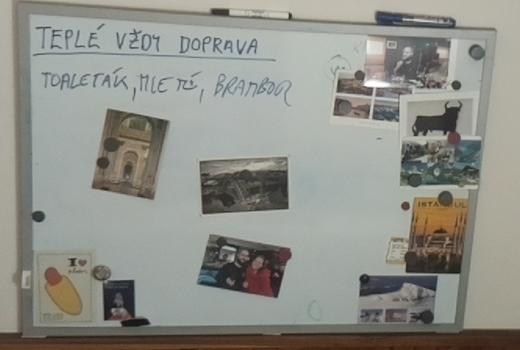 TEPLÉ VŽDY DOPRAVA
TOALETÁK, MLETÉ, BRAMBOR
ISTANBUL
I ❤